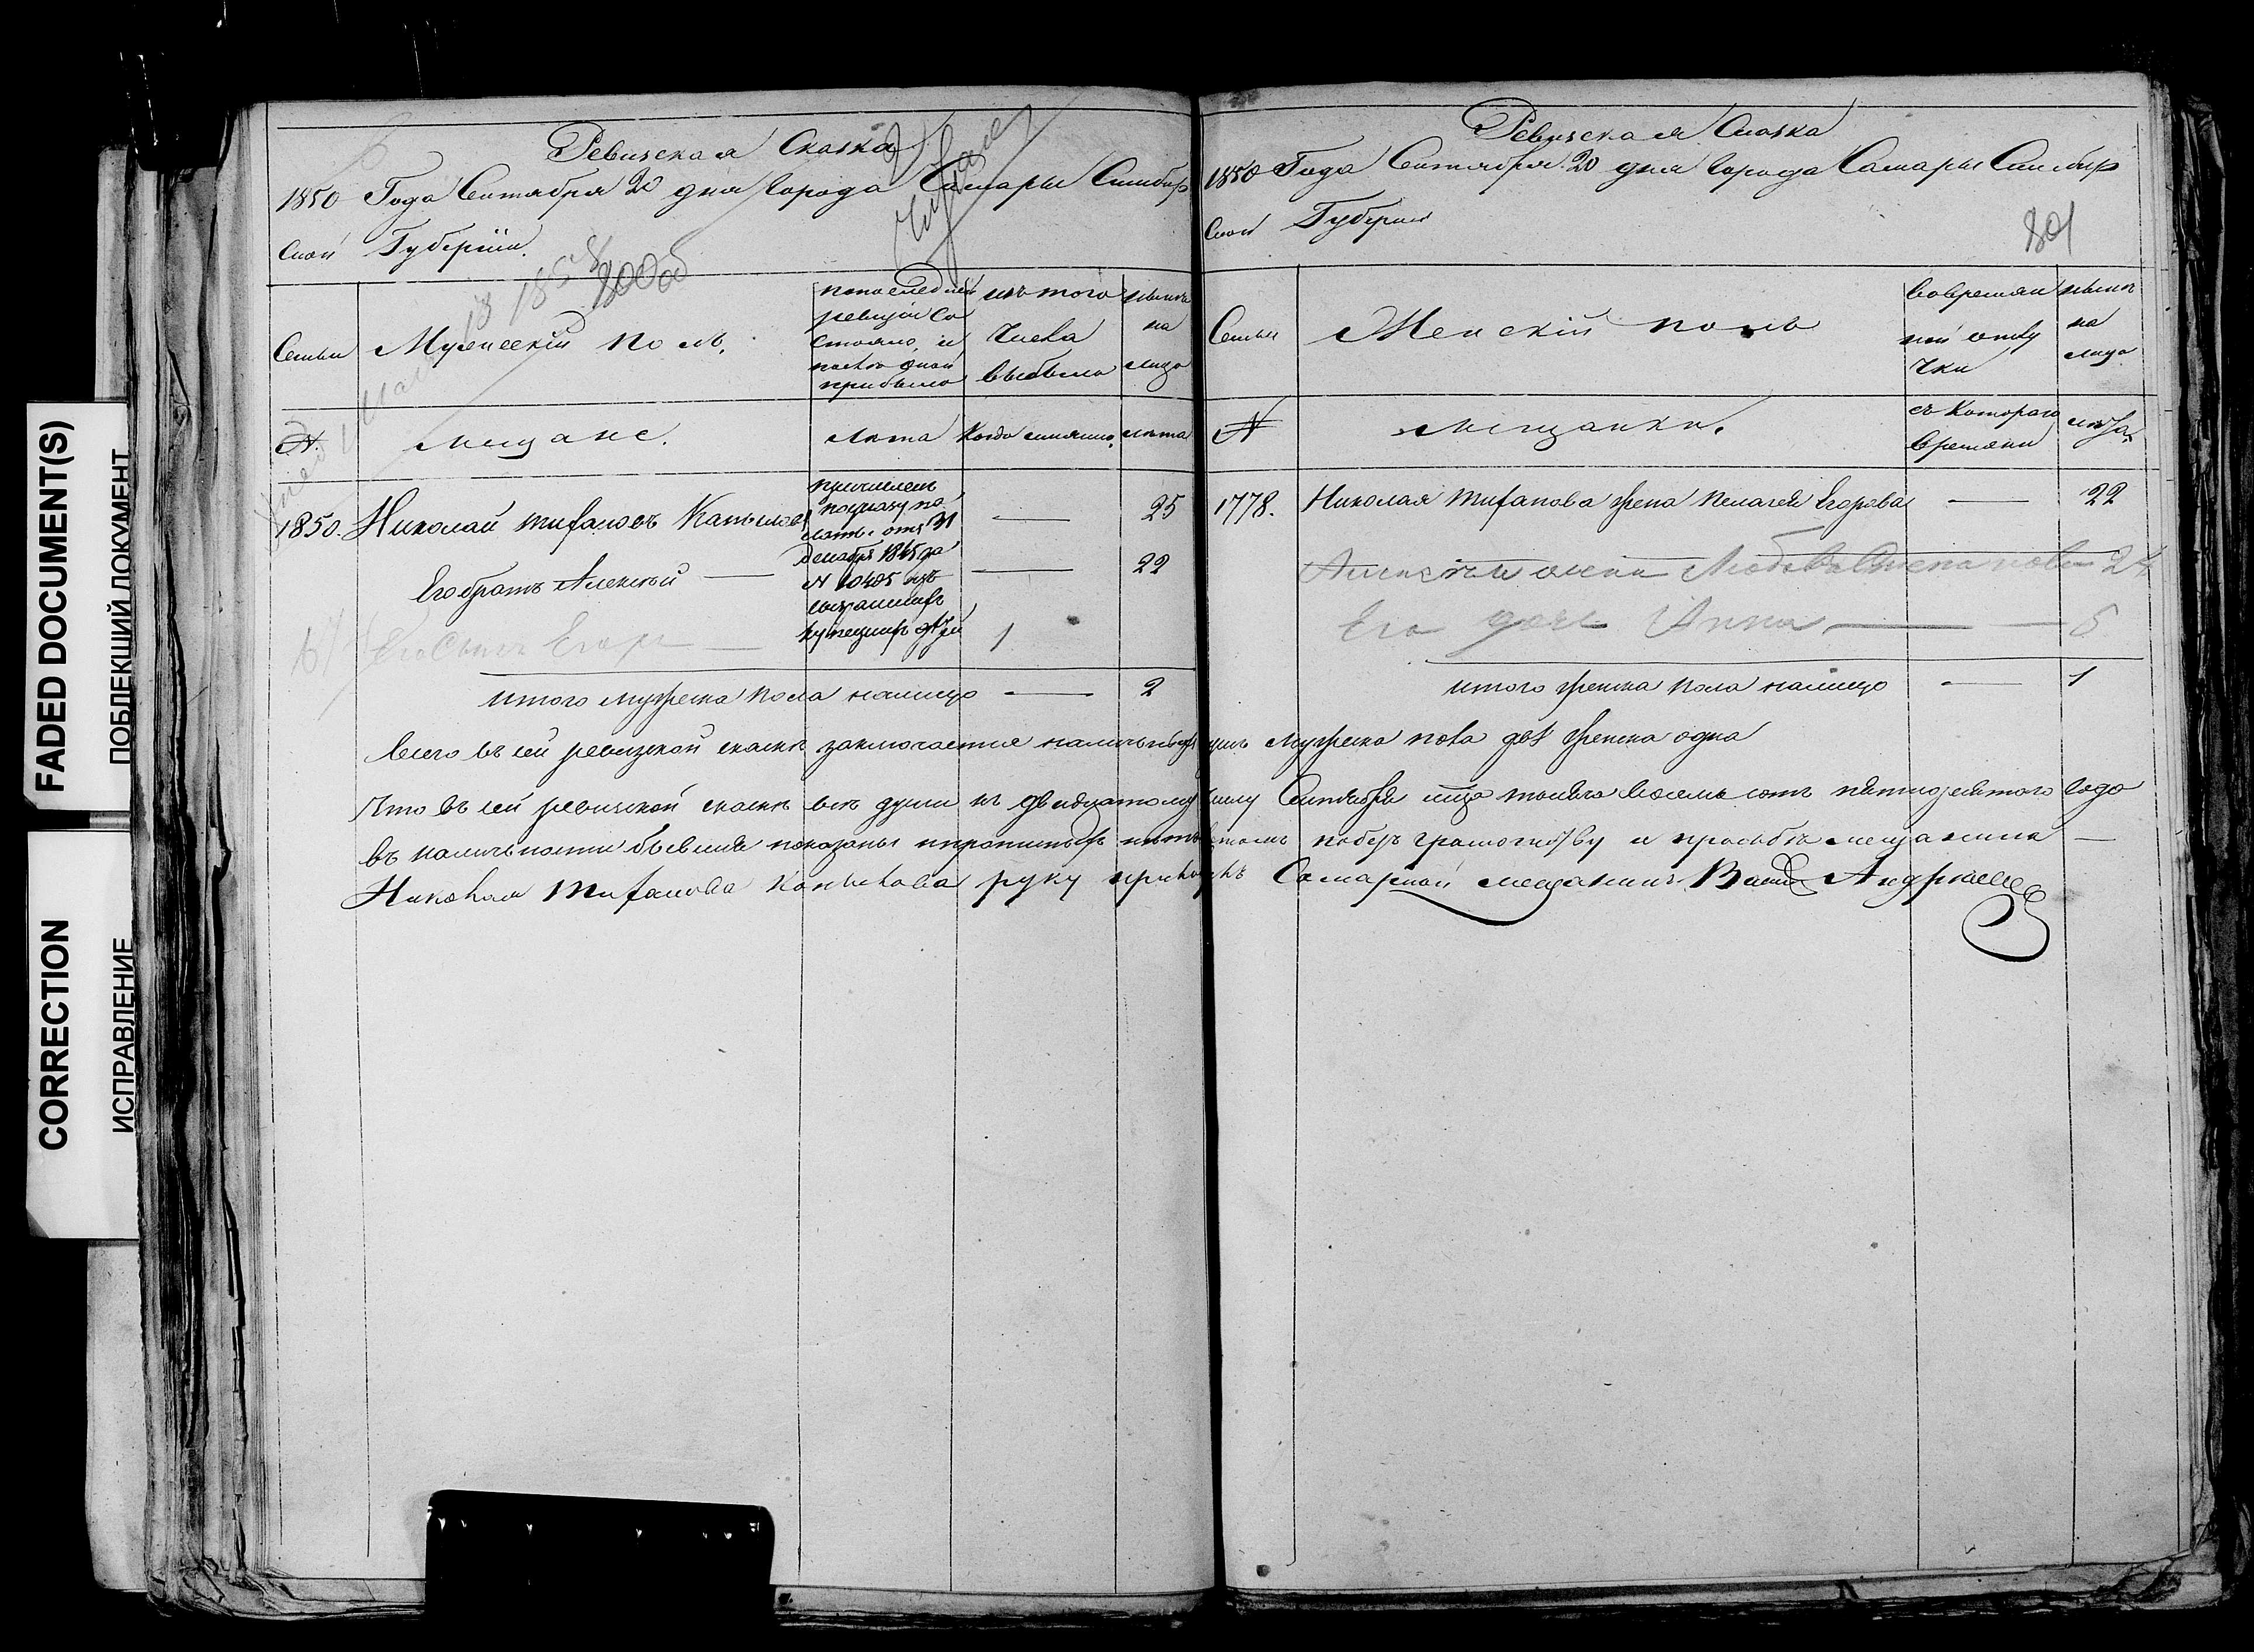 FADED DOCUMENT(S)
ПОБЛЕКШИЙ ДОКУМЕНТ
CORRECTION
ИСПРАВЛЕНИЕ
Ревизская Сказка
1850 Года Сентября 20 дня Города Самары Симбир
ской Губернiи.
800об
Семьи
Мужескiй полъ.
по последней
ревизiи со
стояло, и
после оной
прибыло
изъ того
числа
выбыло
ныне
на
лицо
№.
мещане.
лета
Когда именно.
лета
1850. Николай Тифановъ Копыловъ
причислен
по указу па
латы отъ 31
декабря 1845 за
№ 10405 изъ
сызранских
купецких детей
25
Его братъ Алексей
22
Его Сынъ Егоръ
1
итого мужеска пола налицо 2
Ревизская Сказка
1850 Года Сентября 20 дня Города Самары Симбир
ской Губернiи
801
Семьи
Женскiй полъ
во времян
ной отлу
чки
ныне
на
лицо
№
мещанки.
съ котораго
времяни
лета
1778. Николая Тифанова жена Пелагея Егорова 22
Алексея жена Любовь Степанова 24
Его дочь Анна 5
итого женска пола налицо 1
Всего въ сей ревизской сказке заключается наличныхъ душъ мужеска пола две женска одна
Что въ сей ревизской сказке все души къ двадцатому числу Сентября мца тысяча восемь сотъ пятидесятого года
въ наличности бывшия показаны и прописныхъ нетъ въ томъ по безграмотству и прозьбе мещанина
Николая Тифанова Копылова руку приложилъ Самарской мещанинъ Андреевъ